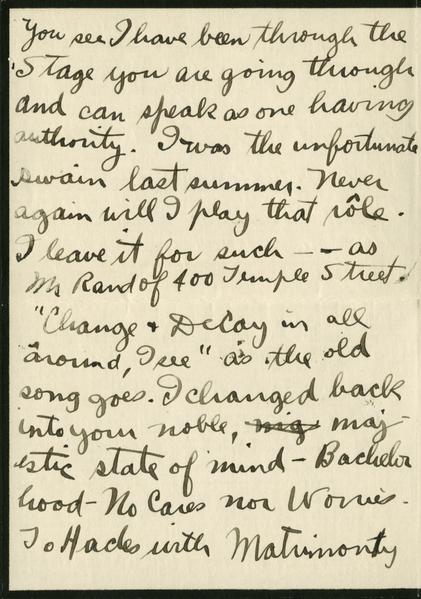 You see I have been through the
Stage you are going through
and can speak as one having
authority. I was the unfortunate
swain last summer. Never
again will I play that rôle.
I leave it for such — — as
Mr Rand of 400 Temple Street.
"Change + Decay in all
around, I see" as the old
song goes. I changed back
into your noble, nig maj-
estic state of mind – Bachelor
hood – No Cares nor Worries.
To Hades with Matrimonty